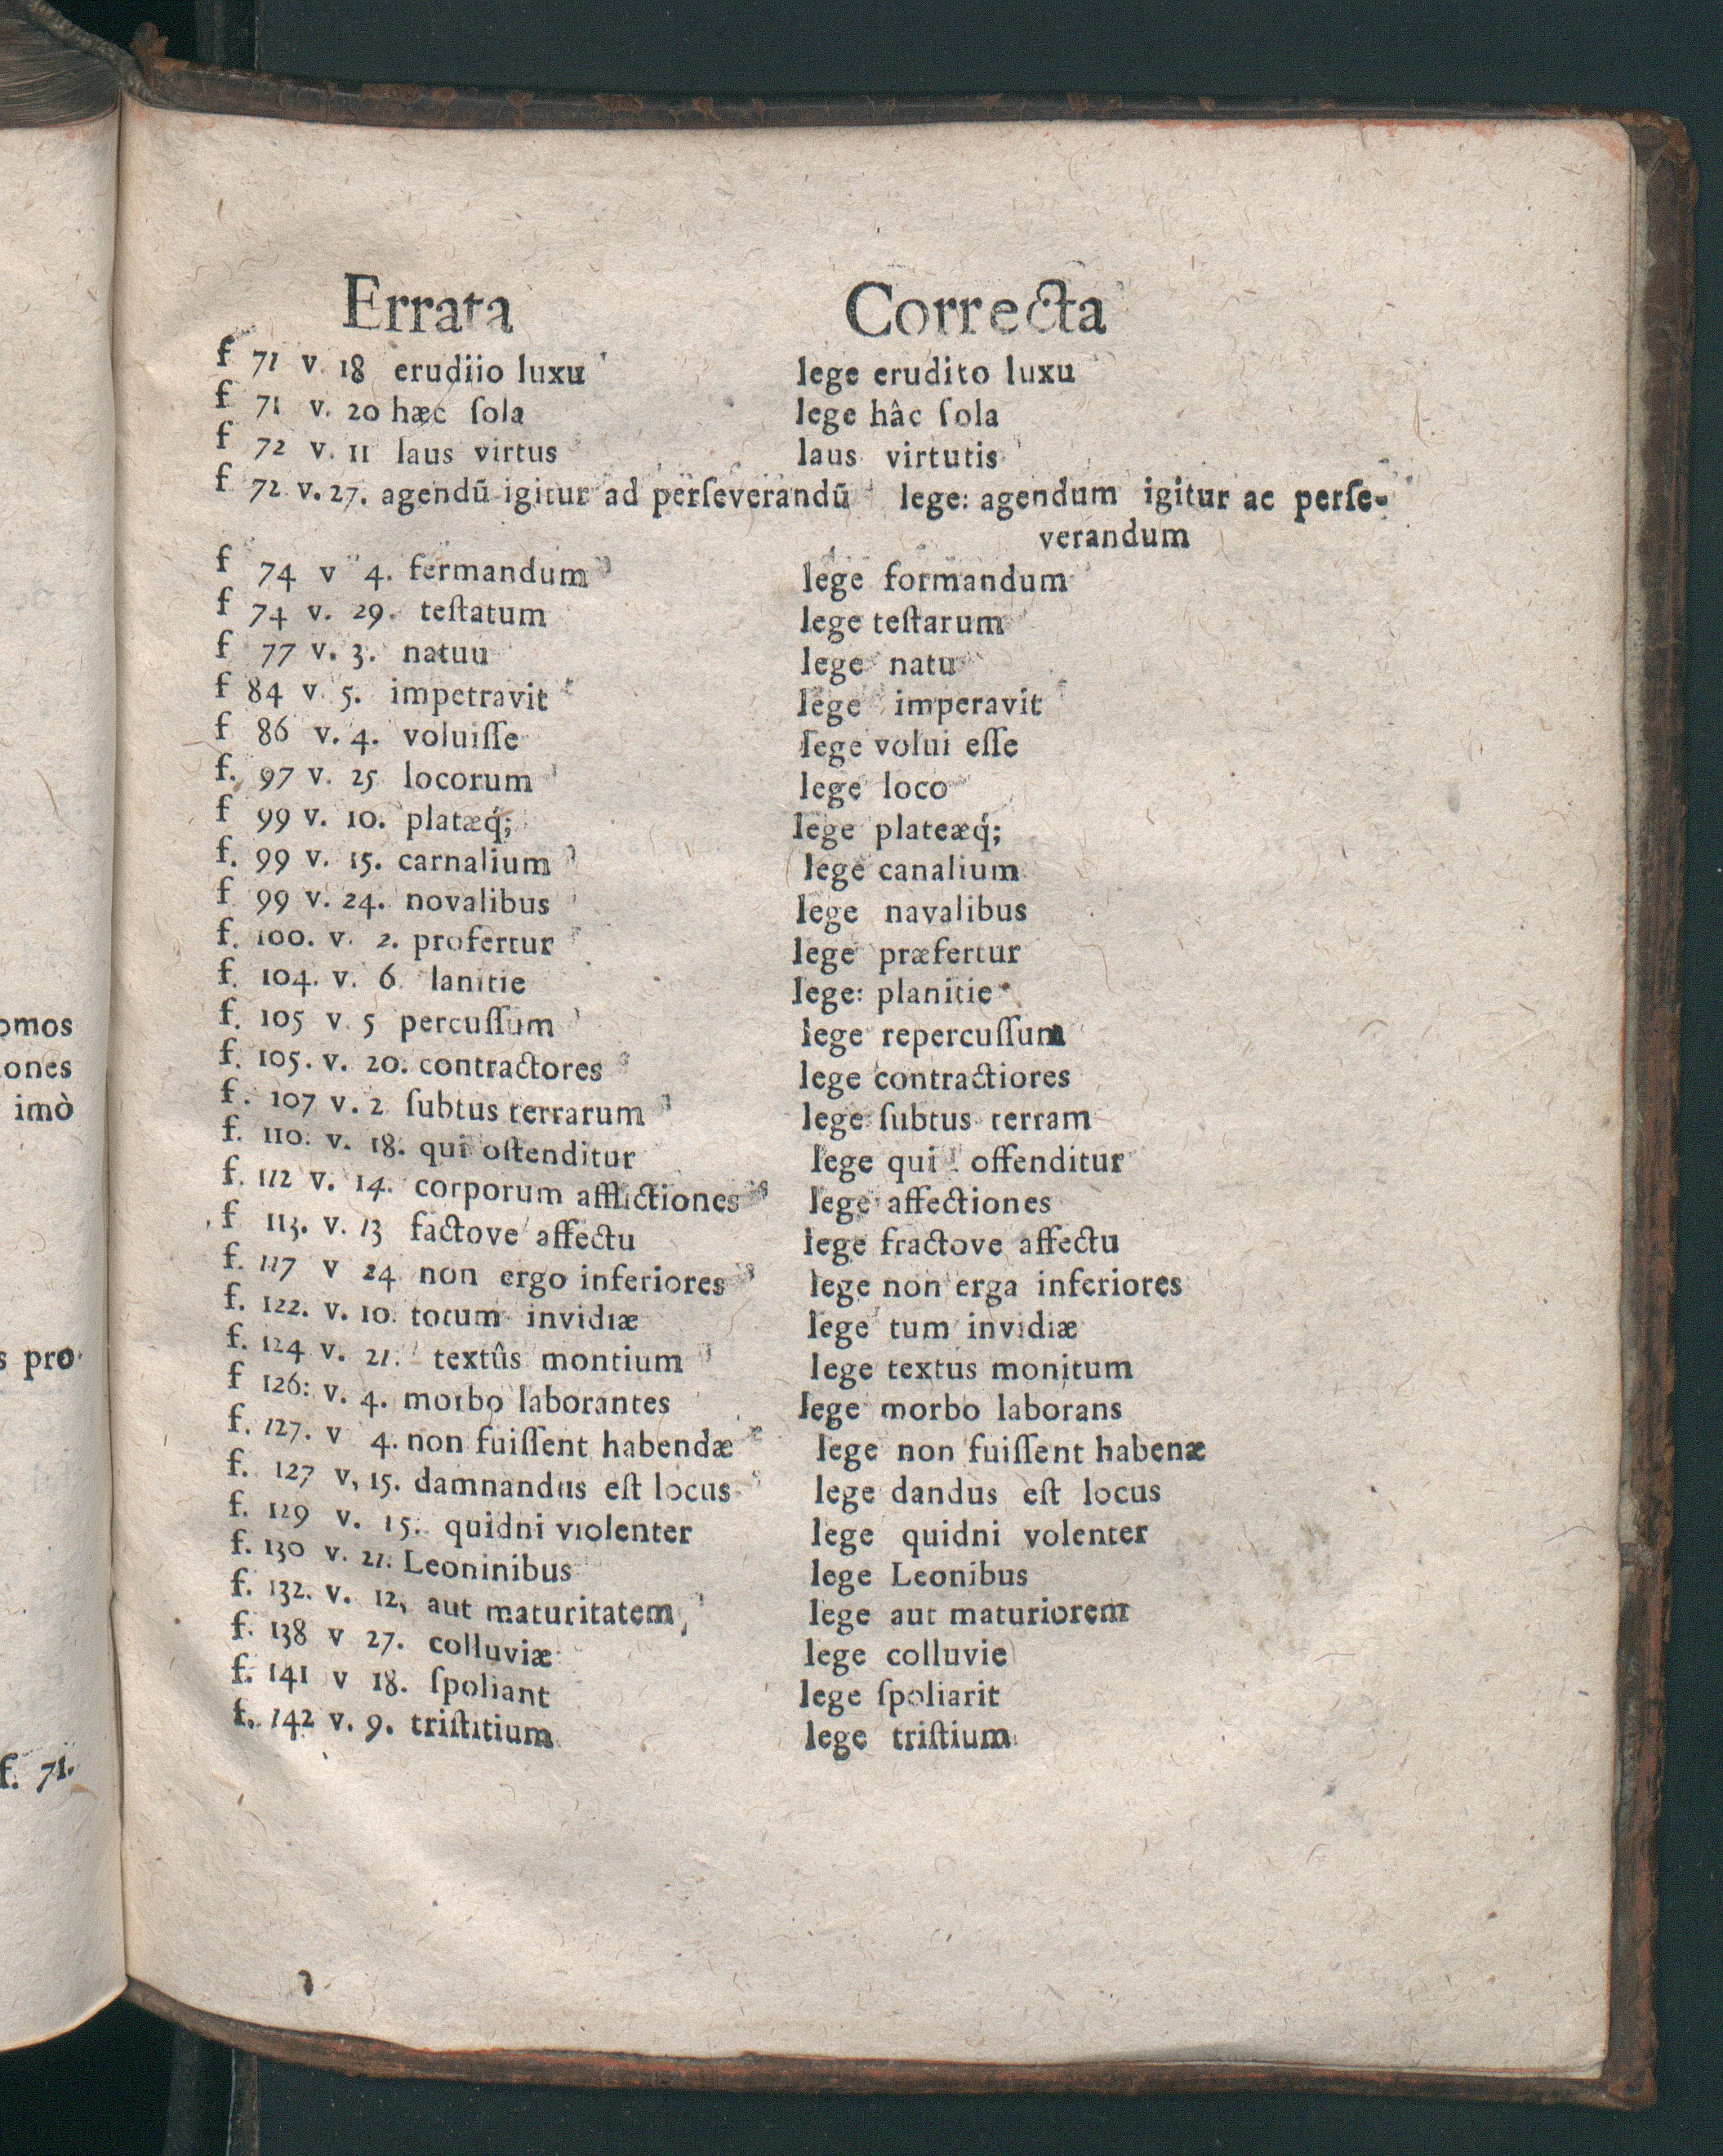 omos
ones
imò
s pro
f. 71.
Errata Correcta
f 71 v. 18 erudiio luxu lege erudito luxu
f 71 v. 20 hæc ſola lege hâc ſola
f 72 v. 11 laus virtus laus virtutis
f 72 v. 27. agendū igitur ad perſeverandū lege: agendum igitur ac perſe-
verandum
f 74 v 4. fermandum lege formandum
f 74 v. 29. teſtatum lege teſtarum
f 77 v. 3. natuu lege natu
f 84 v 5. impetravit lege imperavit
f 86 v. 4. voluiſſe lege volui eſſe
f. 97 v. 25 locorum lege loco
f 99 v. 10. platæq́; lege plateæq́;
f. 99 v. 15. carnalium lege canalium
f 99 v. 24. novalibus lege navalibus
f. 100. v. 2. profertur lege præfertur
f. 104. v. 6 lanitie lege: planitie
f. 105 v 5 percuſſum lege repercuſſum
f. 105. v. 20. contractores lege contractiores
f. 107 v. 2 ſubtus terrarum lege ſubtus terram
f. 110. v. 18. qui oſtenditur lege qui offenditur
f. 112 v. 14. corporum afflictiones lege affectiones
f 113. v. 13 factove affectu lege fractove affectu
f. 117 v 24 non ergo inferiores lege non erga inferiores
f. 122. v. 10. totum invidiæ lege tum invidiæ
f. 124 v. 21. textûs montium lege textus monitum
f 126: v. 4. morbo laborantes lege morbo laborans
f. 127. v 4. non fuiſſent habendæ lege non fuiſſent habenæ
f. 127 v, 15. damnandus eſt locus lege dandus eſt locus
f. 129 v. 15. quidni violenter lege quidni volenter
f. 130 v. 21. Leoninibus lege Leonibus
f. 132. v. 12, aut maturitatem, lege aut maturiorem
f. 138 v 27. colluviæ lege colluvie
f. 141 v 18. ſpoliant lege ſpoliarit
f. 142 v. 9. triſtitium lege triſtium